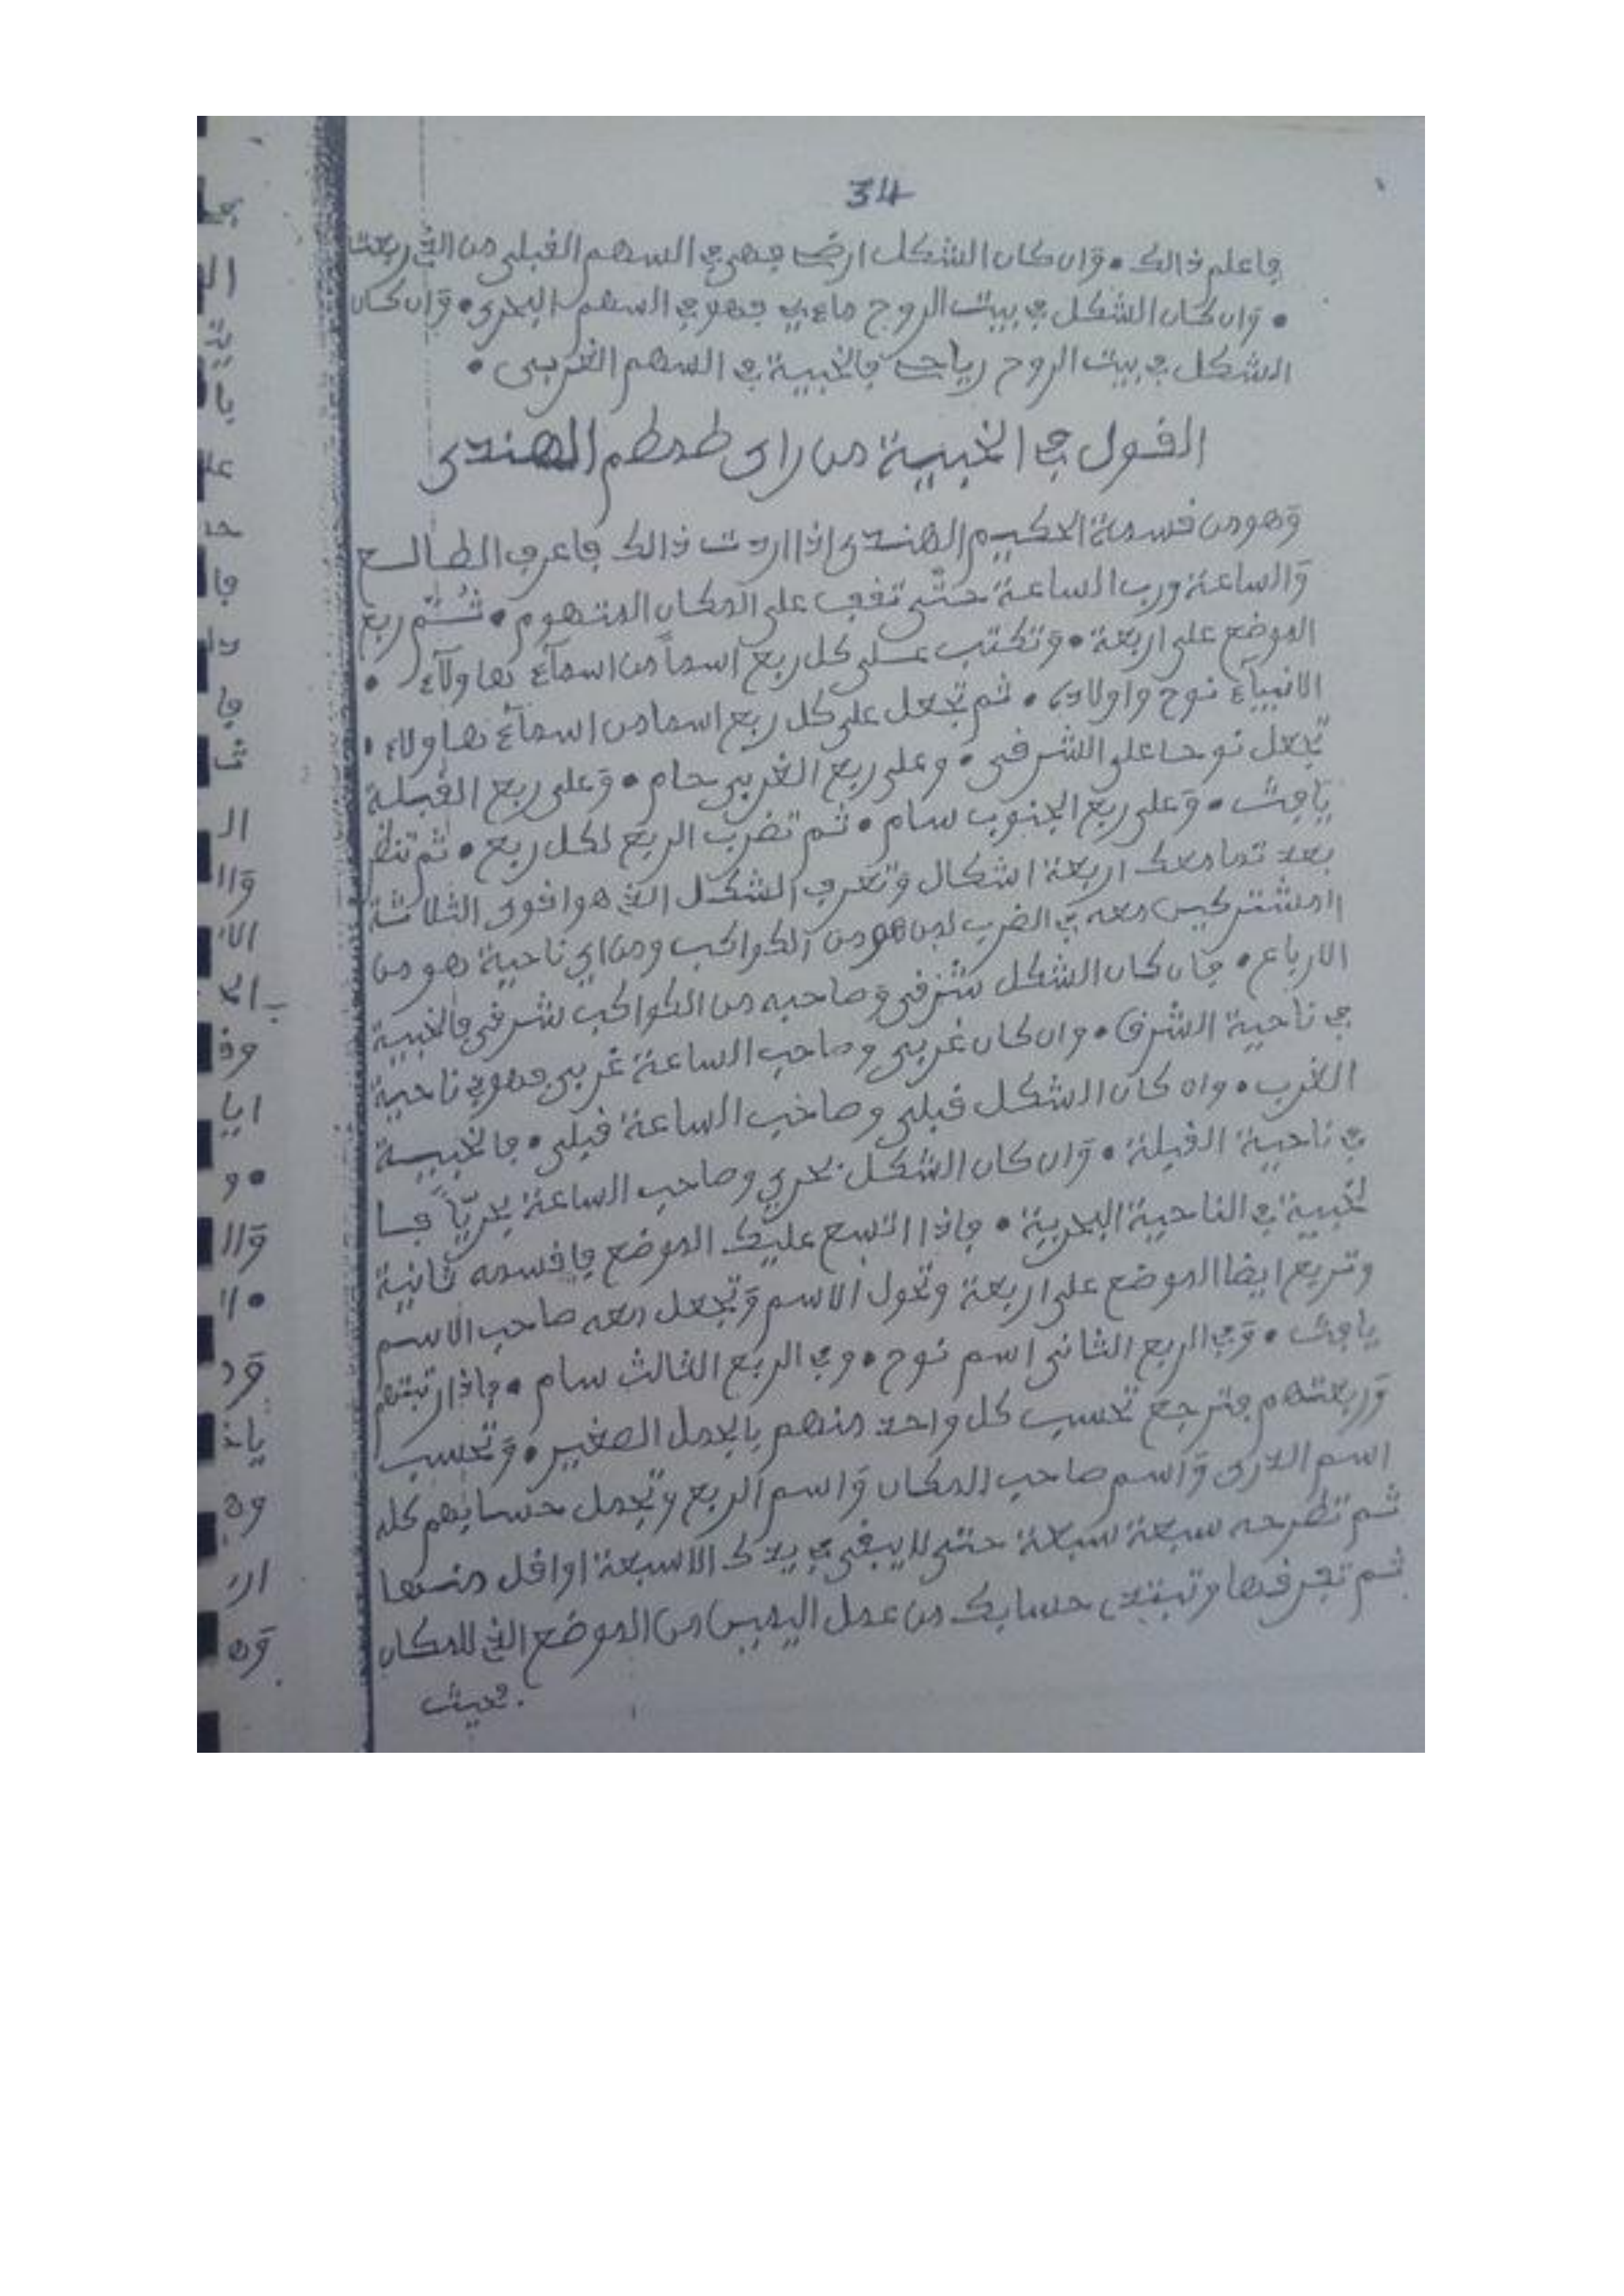 34
فاعلم ذالك • وان كان الشكل ارضي فهي في السهم القبلي من الذي ربعت
• وان كان الشكل في بيت الروح ماءي فهو في السهم البحري • وان كان
الشكل في بيت الروح رياحي فالخبية في السهم الغربي •
القول في الخبية من راى طمطم الهندى
وهو من قسمة الحكيم الهندى اذا اردت ذالك فاعرف الطالع
والساعة ورب الساعة حتى تقف على المكان المتهوم • ثم ربع
الموضع على اربعة • وتكتب على كل ربع اسماً من اسمآء هاولآء •
الانبيآء نوح واولاده • ثم تجعل على كل ربع اسما من اسمآء هاولاء •
تجعل نوحا على الشرقي • وعلى ربع الغربي حام • وعلى ربع القبلة
يافث • وعلى ربع الجنوب سام • ثم تضرب الربع لكل ربع • ثم تنظر
بعد تمامعك اربعة اشكال وتعرف الشكل الذي هو اقوى الثلاثة
المشتركين معه في الضرب لمن هو من الكواكب ومن اي ناحية هو من
الارباع • فان كان الشكل شرقي وصاحبه من الكواكب شرقي فالخبية
في ناحية الشرق • وان كان غربي وصاحب الساعة غربي فهو في ناحية
الغرب • وان كان الشكل قبلي وصاحب الساعة قبلي • فالخبية
في ناحية القبلة • وان كان الشكل بحري وصاحب الساعة بحريّاً فا
لخبية في الناحية البحرية • فاذا اتسع عليك الموضع فاقسمه ثانية
وتربع ايضا الموضع على اربعة وتحول الاسم وتجعل معه صاحب الاسم
يافث • وفي الربع الثاني اسم نوح • وفي الربع الثالث سام • فاذا رتبتهم
وربعتهم فترجع تحسب كل واحد منهم بالجمل الصغير • وتحسب
اسم الدرى واسم صاحب المكان واسم الربع وتجمل حسابهم كله
ثم تطرحه سبعة سبعة حتى لا يبقى في يدك الا سبعة او اقل منها
ثم تعرفها وتبتدى حسابك من عمل اليمين من الموضع الذي للمكان
فحيث